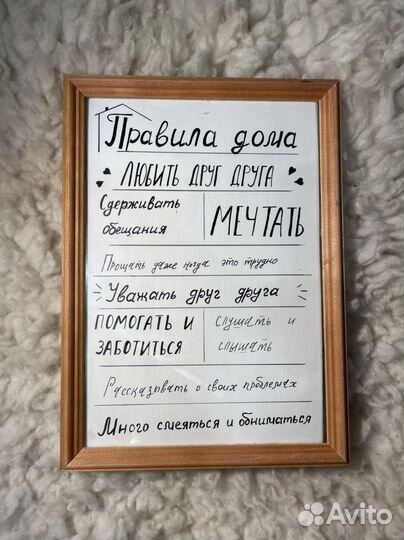 Правила дома
ЛЮБИТЬ ДРУГ ДРУГА
Сдерживать
обещания
МЕЧТАТЬ
Прощать даже когда это трудно
Уважать друг друга
ПОМОГАТЬ И
ЗАБОТИТЬСЯ
слушать и
слышать
Рассказывать о своих проблемах
Много смеяться и обниматься
Avito